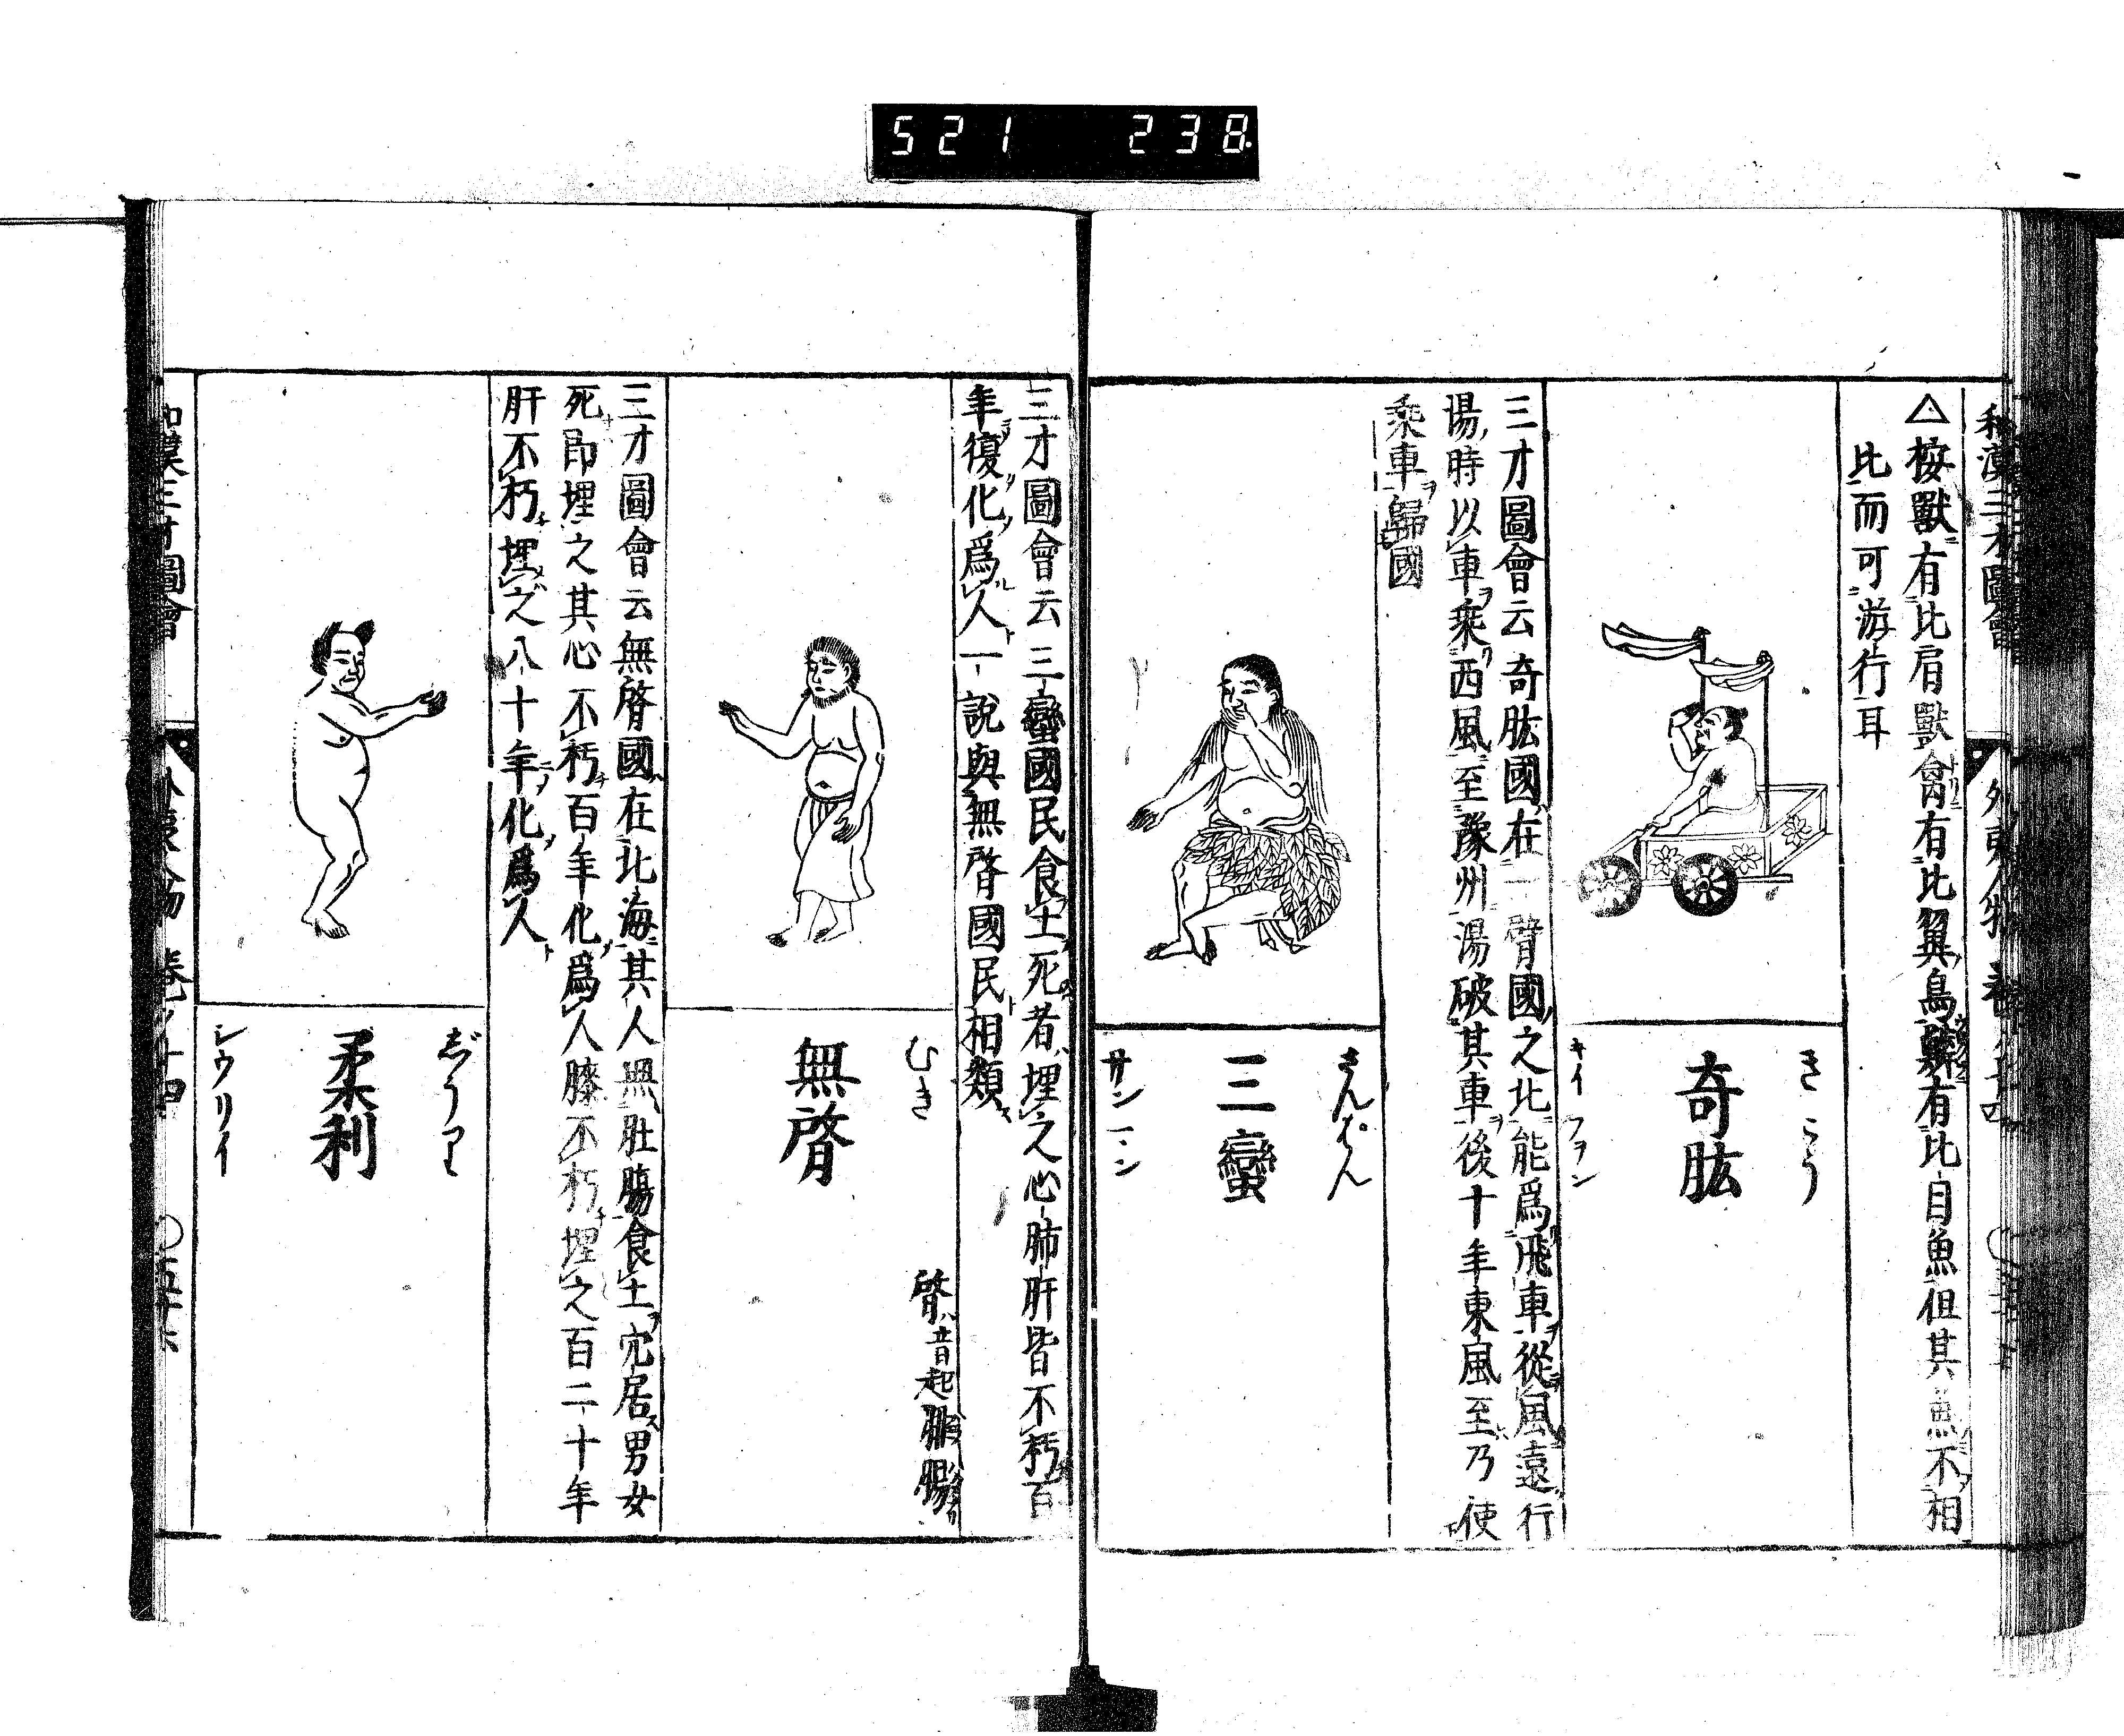 521 238
和漢三才圖會 外夷人物 卷ノ十四
△按獸有比肩獸禽有比翼鳥獸有比目魚但其魚不相
比而可游行耳
きこう
奇肱
キイ フヲン
三才圖會云奇肱國在一臂國之北能爲飛車從風遠行
湯時以車乘西風至豫州湯破其車後十年東風至乃使
乘車歸國
さんばん
三蠻
サン
三才圖會云三蠻國民食土死者埋之心肺肝皆不朽百
年復化爲人一說與無䏿國民相類
むき
無䏿
䏿音起腓腸
三才圖會云無䏿國在北海其人無肚腸食土穴居男女
死即埋之其心不朽百年化爲人膝不朽埋之百二十年
肝不朽埋之八十年化爲人
じうり
柔利
シウリイ
和漢三才圖會 外夷人物 卷ノ十四 〇五十六